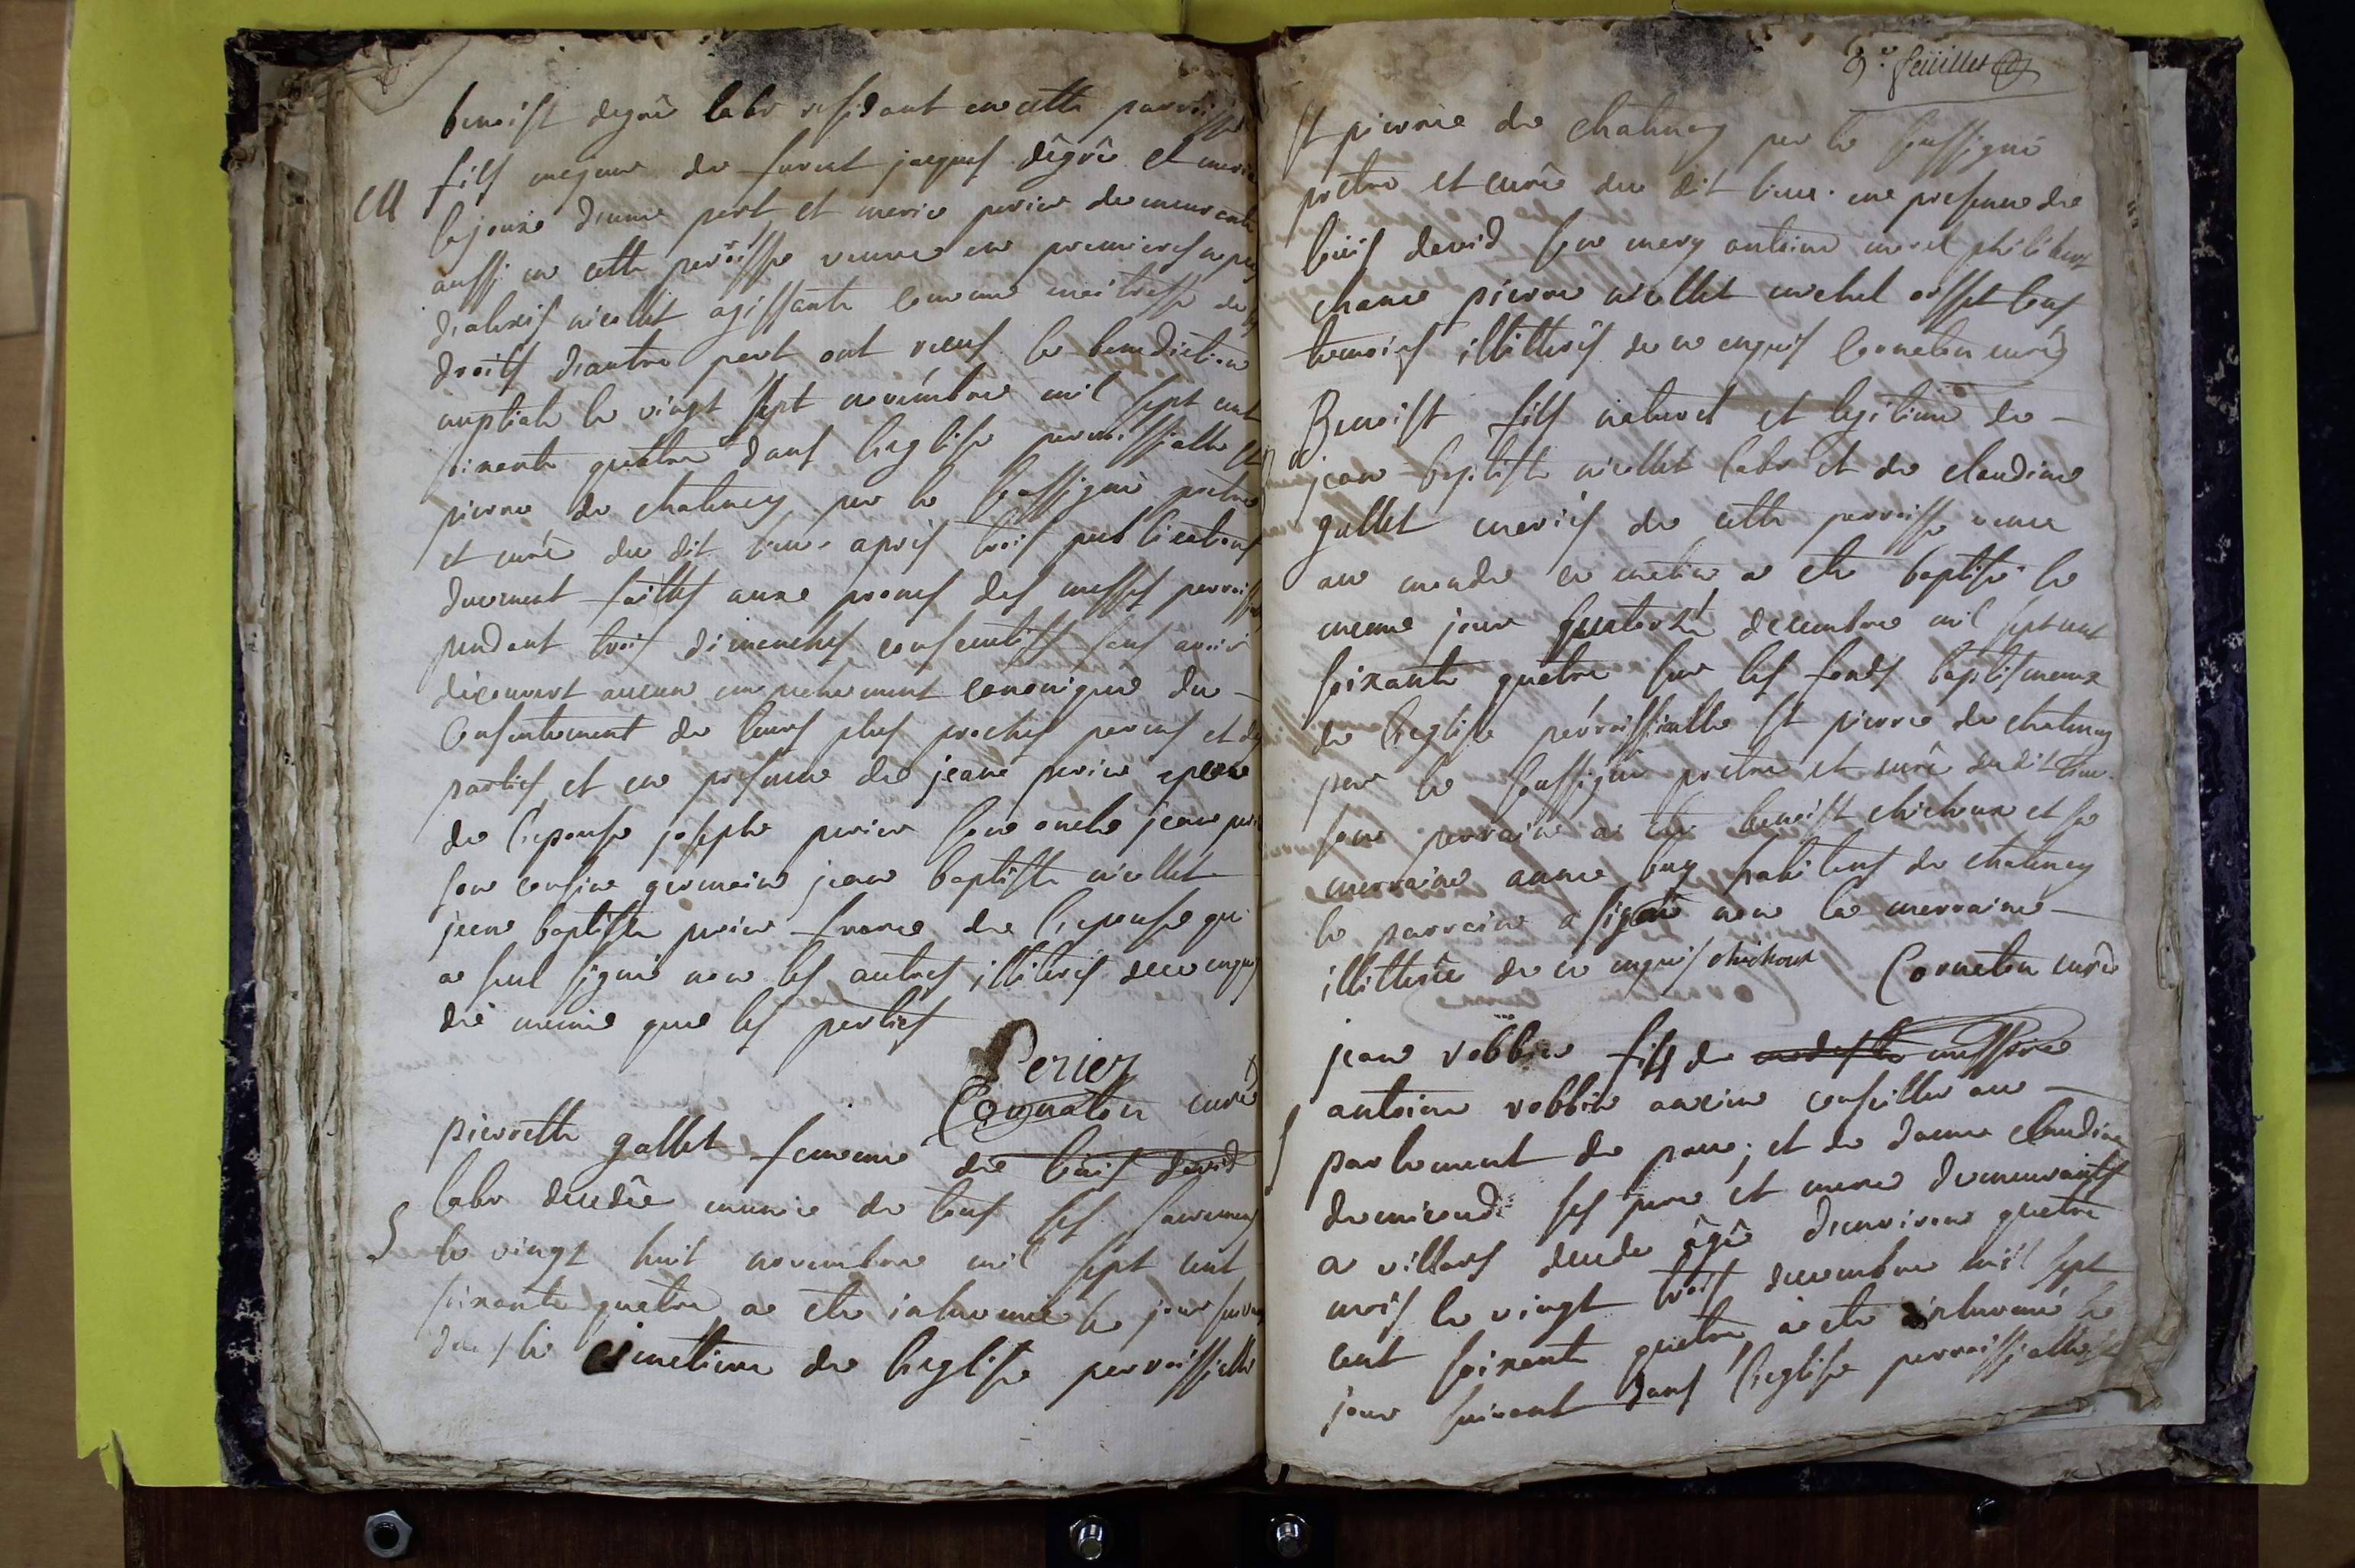 benoist degrê labr résidant en cette parroisse
M
fils majeur de furent jaques dêgrê et marie
lajouxe d'une part, et marie perier demeurante
aussi en cette paroisse veuve en premieres nopces
d'alexis niollet agissante comme maitresse de ses
droits d'autre part ont recus la benediction
nuptiale le vingt sept novembre mil sept cent
soixante quatre dans l'eglise parroissialle st
pierre de chatenay par le soussigné pretre
et curé du dit lieu. apris trois publications
duement faittes aux prones des messes parroiss
pendant trois dimanches consecutifs sans avoir
découvert aucun empechement canonique du
consentement de leurs plus proches parens et des
parties et en presence de jean perier
de l'epouse joseph perier son oncle jean perier
son cousin germain jean baptiste niollet
jean baptiste perier frere de l'epouse qui
a seul signé non les autres illiterés de ce enquis
de meme que les parties
Perier
Cornaton curé
pierrette gallet femme de louis david
S
labr decedée munie de tous ses sacremens
le vingt huit novembre mil sept cent
soixante quatre, a ete inhumée le jour suivant
dans le cimetiere de l'eglise parroissialle
9e. feüillet
st pierre de chatenay par le soussigné
pretre et curé du dit lieu. en presence de
loüis david son mary antoine morel philibert
chanel pierre niollet michel tous
temoins illitterés de ce enquis Cornaton curé
B
Benoist fils naturel et legitime de
jean baptiste niollet labr et de claudine
gallet mariés de cette parroisse venu
au monde ce matin a ete baptisé le
meme jour quatorze decembre mil sept cent
soixante quatre sur les fonds baptismaux
de l'eglise parroissialle st pierre de chatenay
par le soussigné pretre et curé du dit lieu.
son parrain a ete benoist chichoux et sa
marraine anne habitans de chatenay
le parrain a signé non la marraine
illitterée de ce enquis chichoux Cornaton curé
jean robbin fils de messire
antoine robbin ancien conseiller au
S
parlement de pau; et de dame claudine
demicoud ses pere et mere demeurants
a villars decede âgé d'environ quatre
mois le vingt trois decembre mil sept
cent soixante quatre, a ete inhumé le
jour suivant dans l'eglise parroissialle st